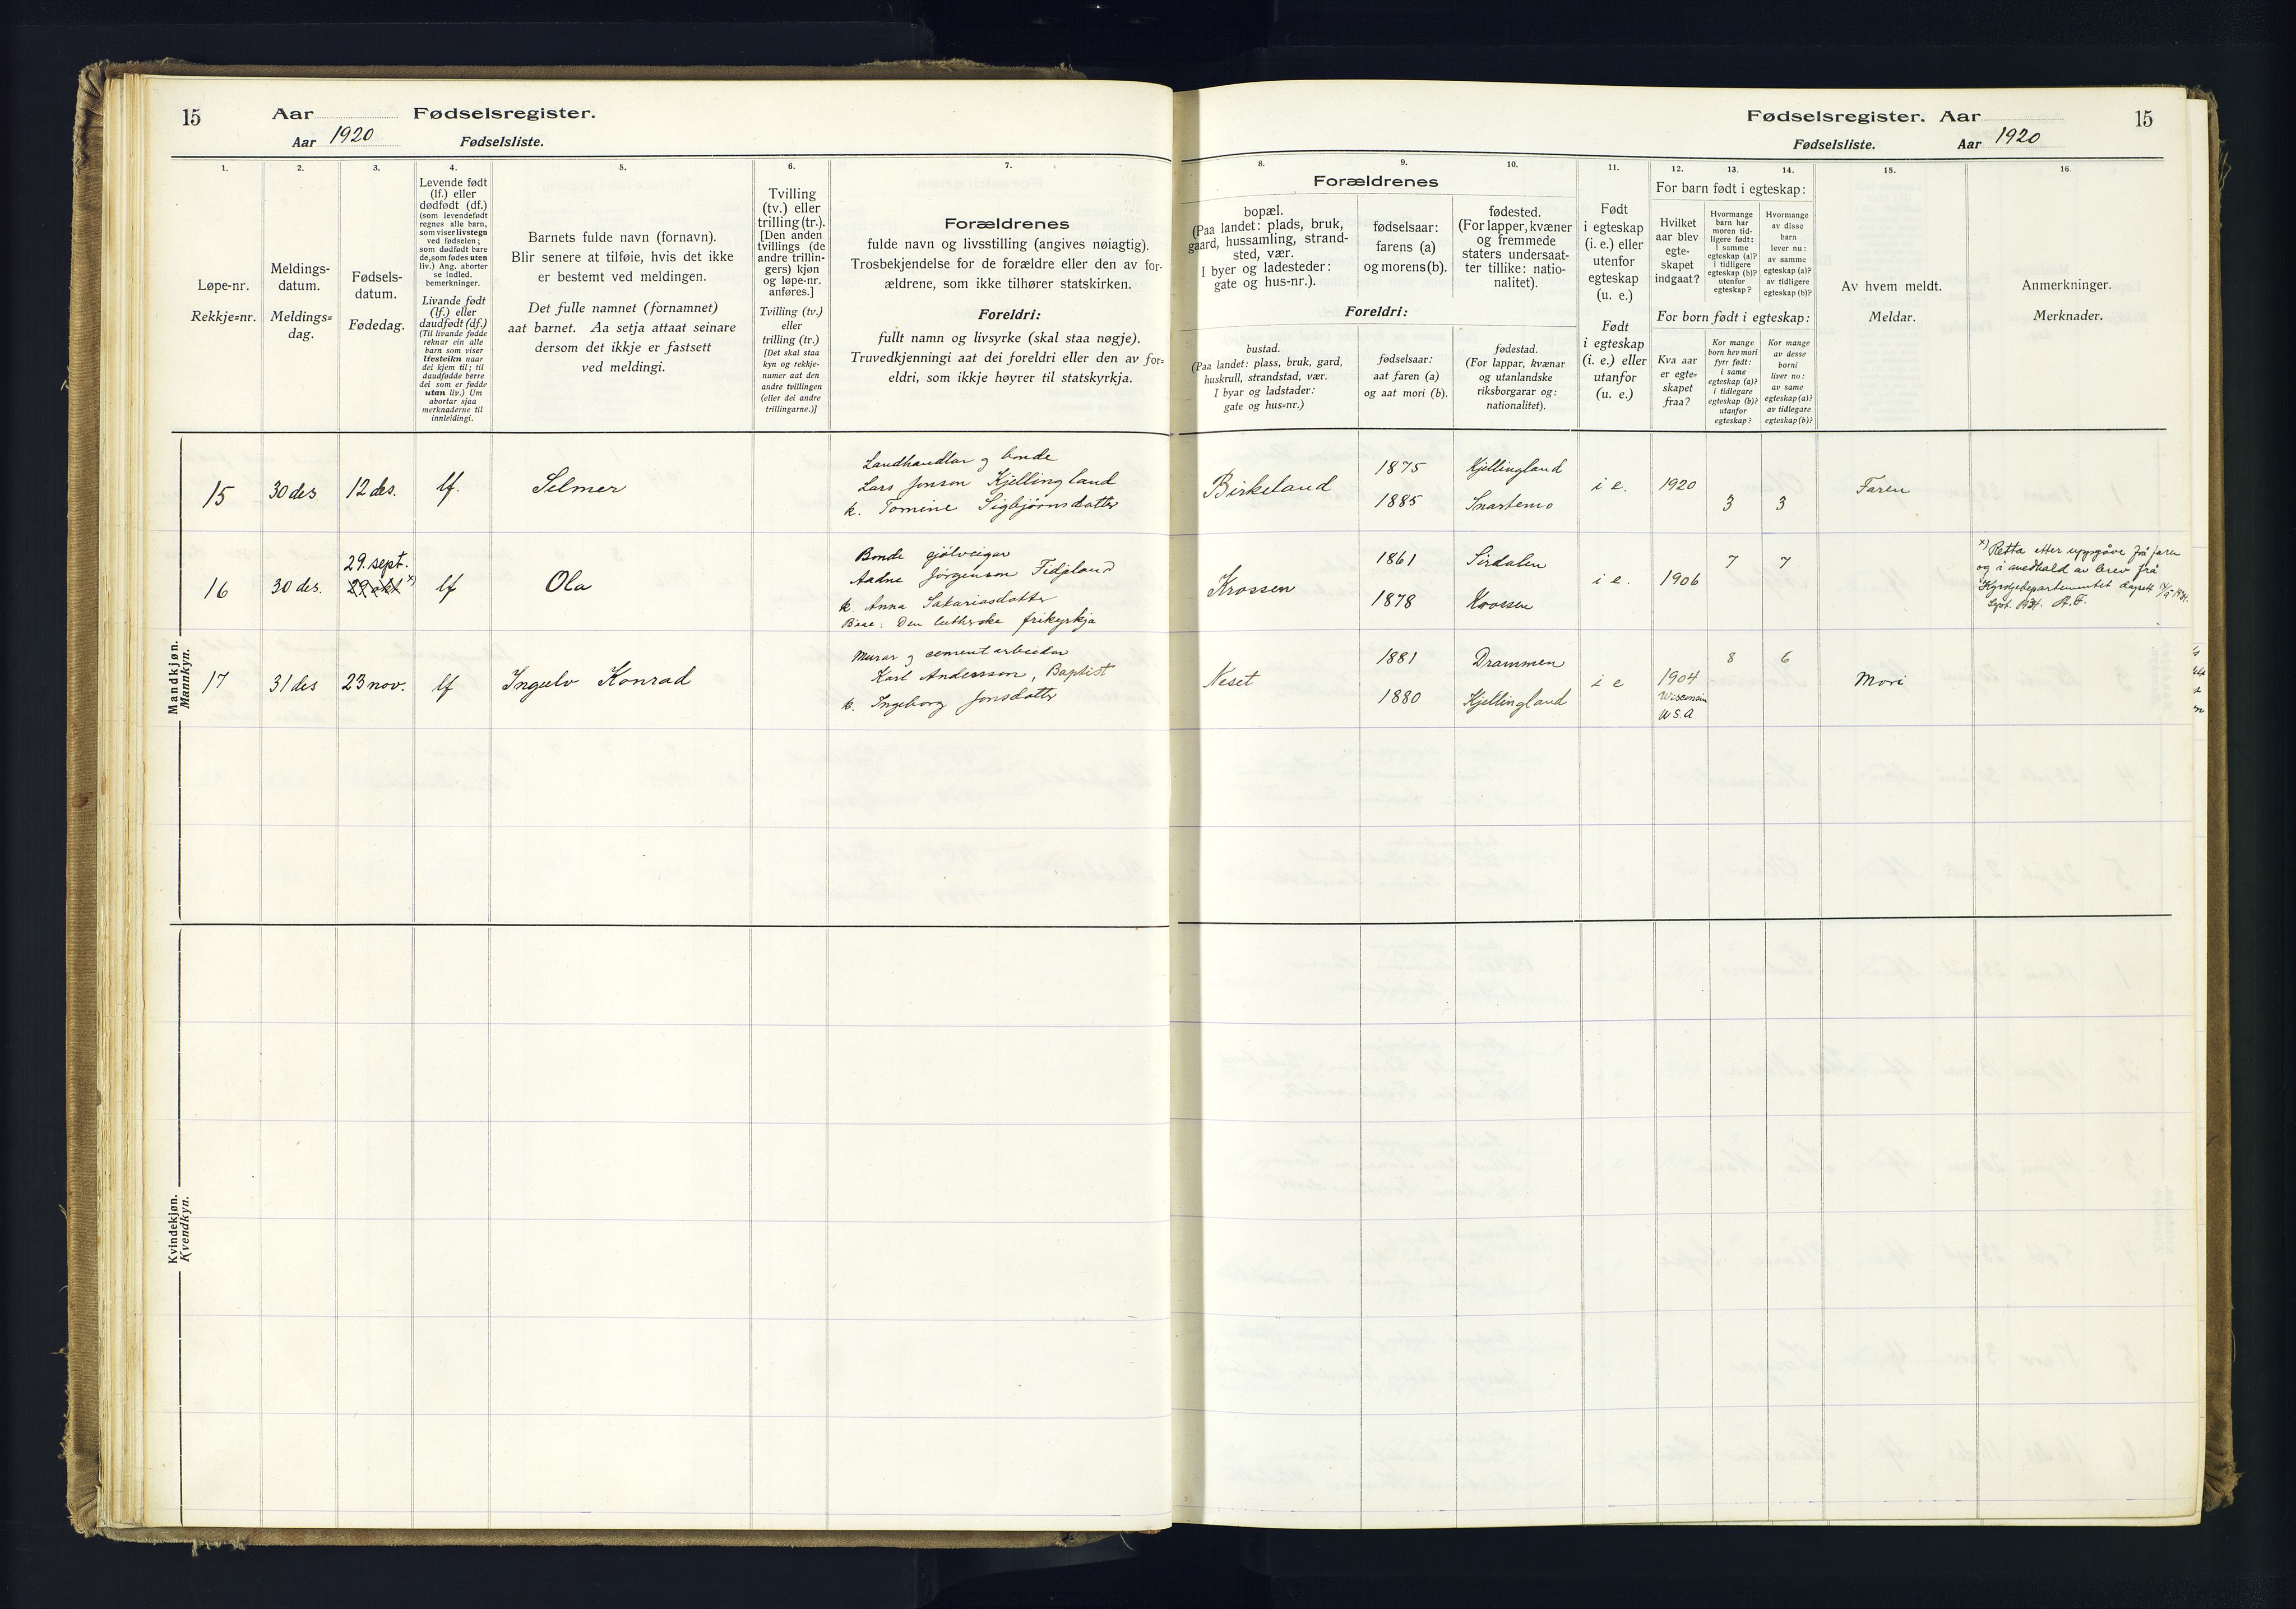 15
Aar Fødselsregister.
Aar 1920 Fødselsliste.
1.
Løpe-nr.
Rekkje=nr.
2.
Meldings-
datum.
Meldings=
dag.
3.
Fødsels-
datum.
Fødedag.
4.
Levende født
(lf.) eller
dødfødt (df.)
(som levendefødt
regnes alle barn,
som viser livstegn
ved fødselen;
som dødfødt bare
de, som fødes uten
liv.) Ang. aborter
se indled.
bemerkninger.
Livande født
(lf.) eller
daudfødt (df.)
(Til livande fødde
reknar ein alle
barn som viser
livsteikn naar
dei kjem til; til
daudfødde berre
dei som er fødde
utan liv.) Um
abortar sjaa
merknaderne til
innleidingi.
5.
Barnets fulde navn (fornavn).
Blir senere at tilføie, hvis det ikke
er bestemt ved meldingen.
Det fulle namnet (fornamnet)
aat barnet. Aa setja attaat seinare
dersom det ikkje er fastsett
ved meldingi.
6.
Tvilling
(tv.) eller
trilling (tr.).
[Den anden
tvillings (de
andre trillin-
gers) kjøn
og løpe-nr.
anføres.]
Tvilling (tv.)
eller
trilling (tr.)
[Det skal staa
kyn og rekkje-
numer aat den
andre tvillingen
(eller dei andre
trillingarne.)]
7.
Forældrenes
fulde navn og livsstilling (angives nøiagtig).
Trosbekjendelse for de forældre eller den av for-
ældrene, som ikke tilhører statskirken.
Foreldri:
fullt namn og livsyrke (skal staa nøgje).
Truvedkjenningi aat dei foreldri eller den av for=
eldri, som ikkje høyrer til statskyrkja.
Mandkjøn.
Mannkyn.
15 30 des. 12 des. lf. Selmer
Landhandlar og bonde
Lars Jonson Kjellingland
k. Tomine Sigbjørnsdotter
16 30 des. 29. sept. 29 okt x) lf Ola
Bonde sjølveigar
Aadne Jørgenson Fidjeland
k. Anna Sakariasdotter
Baae: Den lutherske frikyrkja
17 31 des 23 nov. lf Ingulv Konrad
Murar og cementarbeider
Karl Anderson, Baptist
k. Ingeborg Jonsdotter
Kvindekjøn.
Kvendkyn.
Fødselsregister. Aar 15
Fødselsliste. Aar 1920
Forældrenes
8.
bopæl.
(Paa landet: plads, bruk,
gaard, hussamling, strand-
sted, vær.
I byer og ladesteder:
gate og hus-nr.).
9.
fødselsaar:
farens (a)
og morens (b).
10.
fødested.
(For lapper, kvæner
og fremmede
staters undersaat-
ter tillike: natio-
nalitet).
Foreldri:
bustad.
(Paa landet: plass, bruk, gard,
huskrull, strandstad, vær.
I byar og ladstader:
gate og hus=nr.)
fødselsaar:
aat faren (a)
og aat mori (b).
fødestad.
(For lappar, kvænar
og utanlandske
riksborgarar og:
nationalitet).
11.
Født
i egteskap
(i. e.) eller
utenfor
egteskap
(u. e.)
Født
i egteskap
(i. e.) eller
utanfor
(u. e.)
For barn født i egteskap:
12.
Hvilket
aar blev
egte-
skapet
indgaat?
13.
Hvormange
barn har
moren tid-
ligere født:
i samme
egteskap (a)?
i tidligere
egteskap (b)?
utenfor
egteskap?
14.
Hvormange
av disse
barn
lever nu:
av samme
egteskap (a)?
av tidligere
egteskap (b)?
For born født i egteskap:
Kva aar
er egte=
skapet
fraa?
Kor mange
born hev mori
fyrr født:
i same
egteskap (a)?
i tidlegare
egteskap (b)?
utanfor
egteskap?
Kor mange
av desse
borni
liver no:
av same
egteskap (a)?
av tidlegare
egteskap (b)?
15.
Av hvem meldt.
Meldar.
16.
Anmerkninger.
Merknader.
Birkeland 1875 Kjellingland i e. 1920 3 3 Faren
1885 Snartemo
Krossen 1861 Sirdalen i e. 1906 7 7
1878 Krossen
x) Retta etter uppgåve frå faren
og i medhald av brev frå
Kyrkjedepartementet
1934. A.F.
Neset 1881 Drammen i e 1904 8 6 Mori
1880 Kjellingland
Wisconsin
U.S.A.